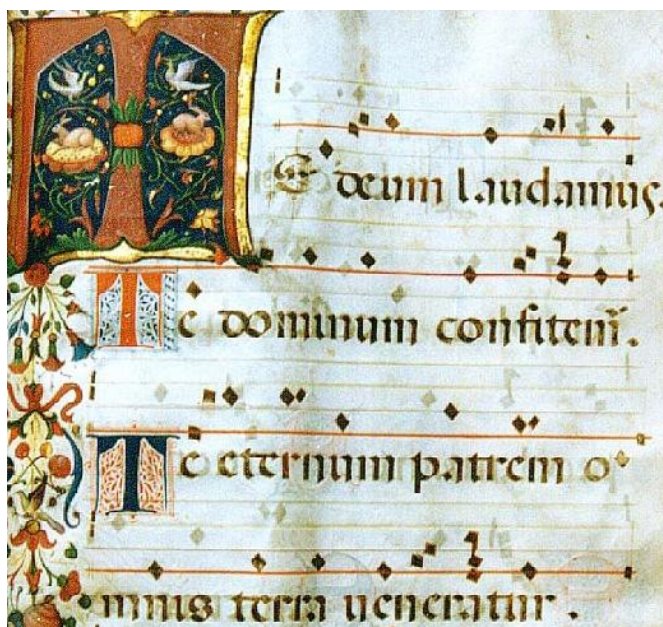 Te deum laudamus.
Te dominum confitem̃.
Te eternum patrem o
mnis terra ueneratur.